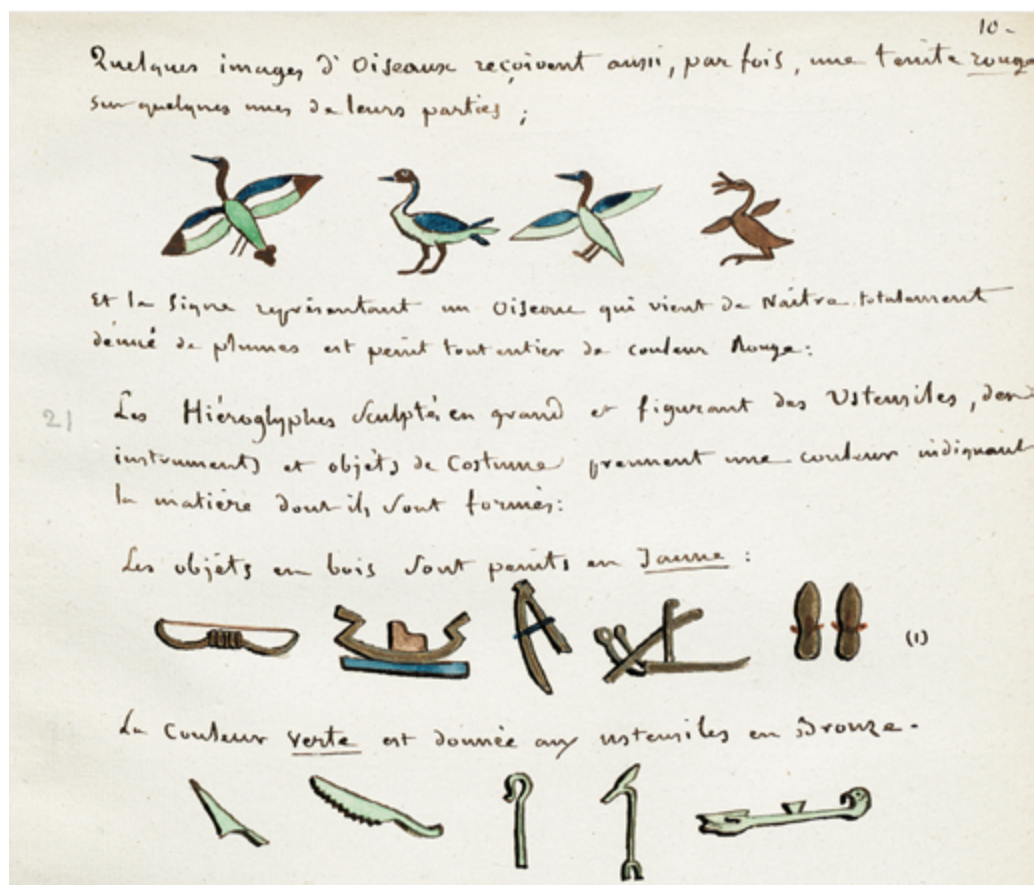 10-
Quelques images d'Oiseaux reçoivent aussi, par fois, une teinte rouge
sur quelques unes de leurs parties ;
Et le Signe représentant un Oiseau qui vient de Naître totalement
dénué de plumes est peint tout entier de couleur Rouge :
21 Les Hiéroglyphes Sculptés en grand et figurant des Ustensiles, des
instruments et objets de Costume prennent une couleur indiquant
la matière dont ils sont formés :
Les objets en bois sont peints en Jaune :
(1)
La Couleur verte est donnée aux ustensiles en Bronze -